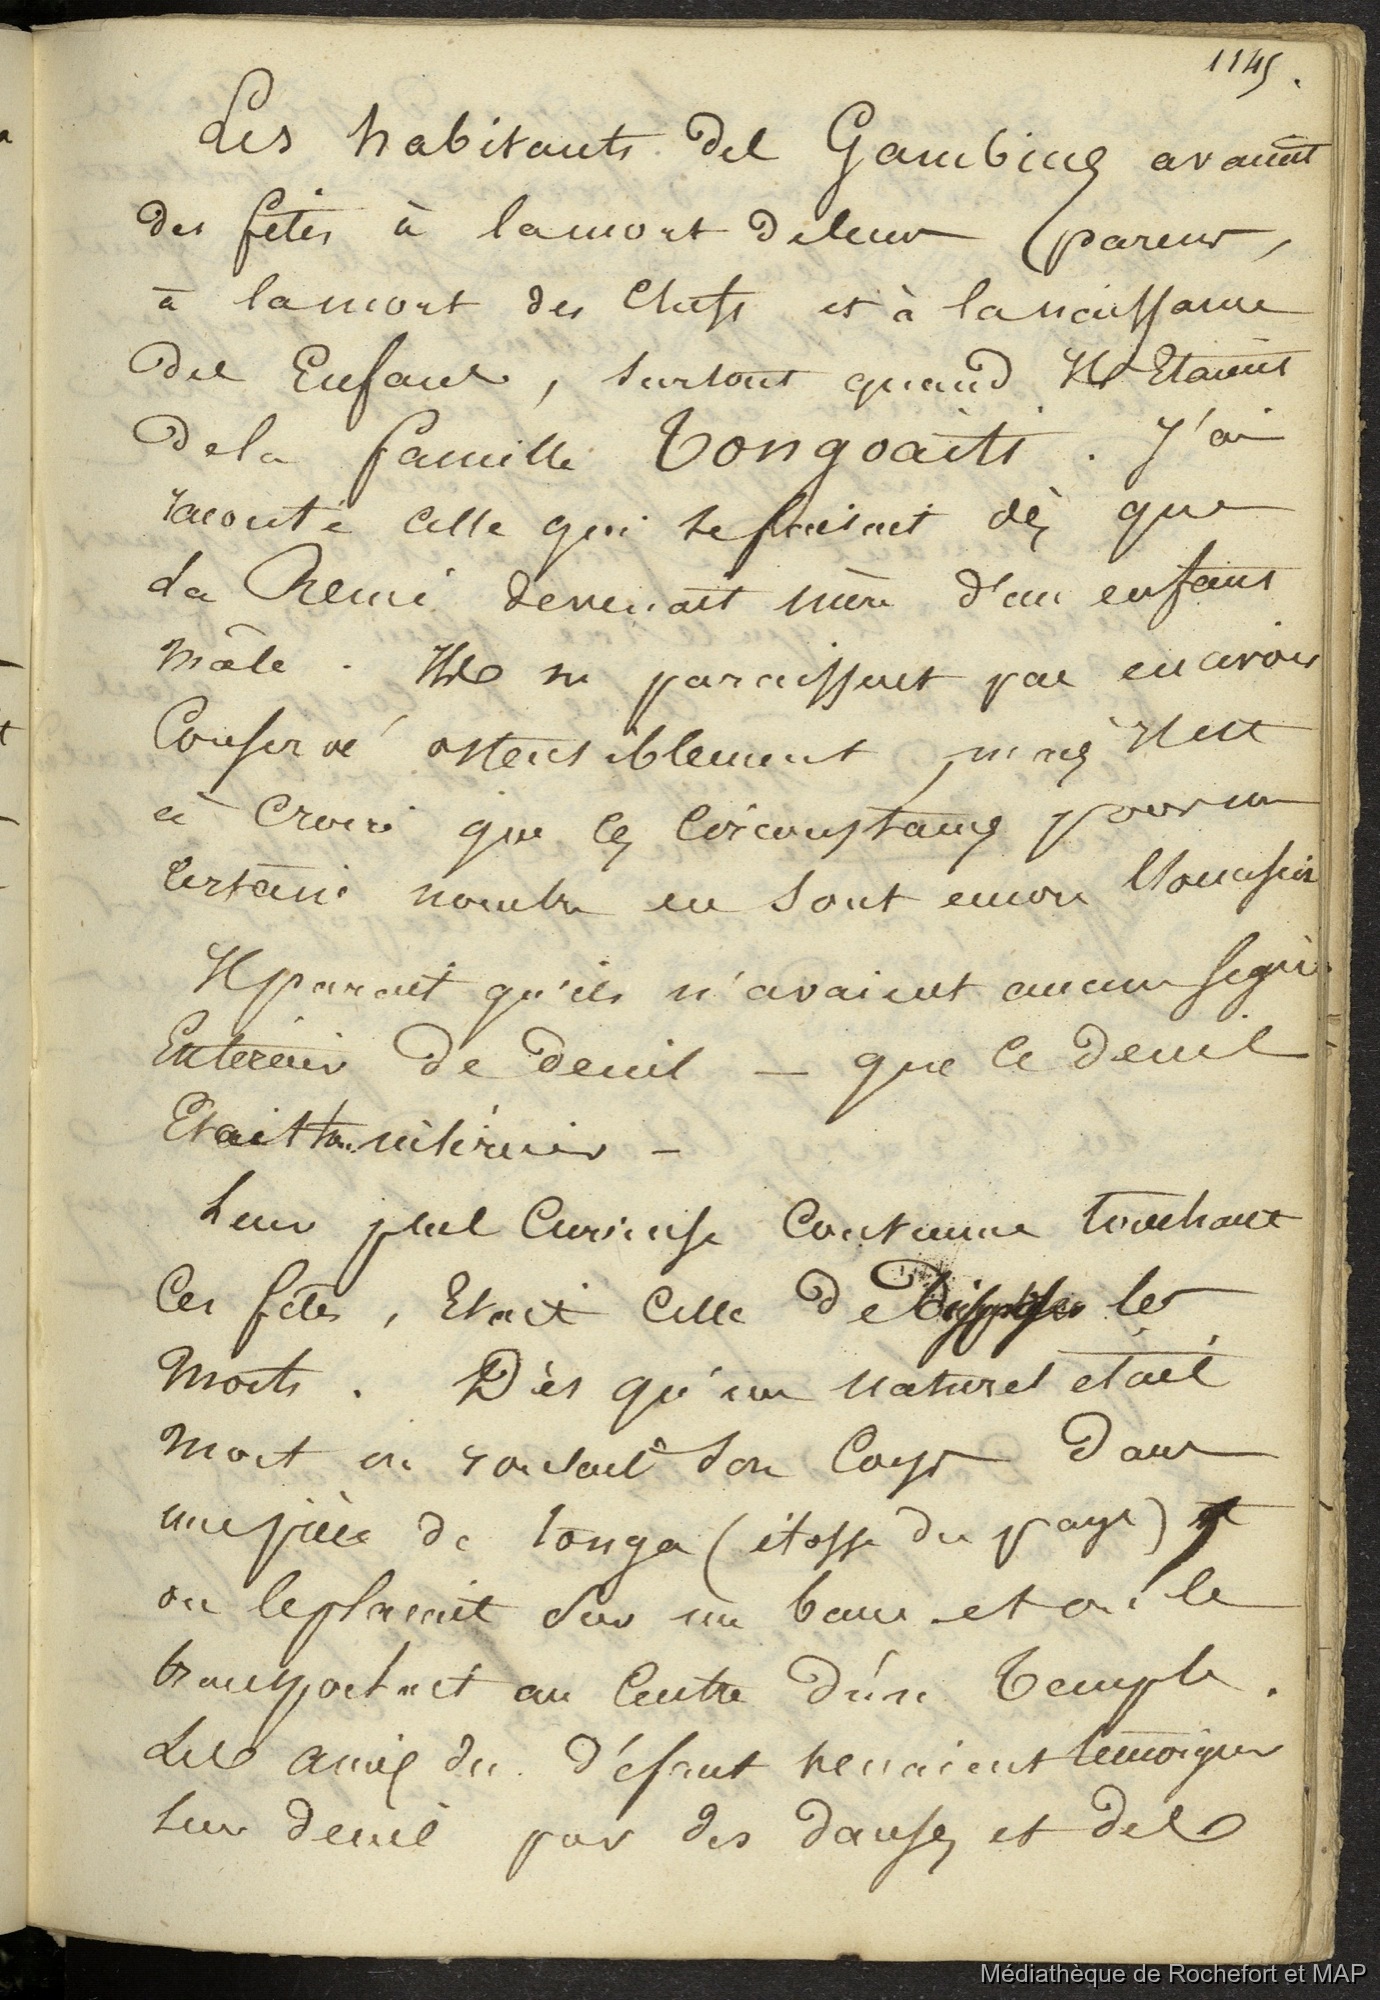 1145.
Les habitants des Gambier avaient
des fêtes à la mort de leur parens,
à la mort des chefs et à la naissance
des Enfans, surtout quand Ils Etaient
de la famille Tongoaiti. J'ai
raconté celle qui se faisait dès que
la Reine devenait mère d'un enfant
mâle. Ils ne paraissent pas en avoir
Conservé ostensiblement, mais Il est
à croire que ces circonstances pour un
certain nombre en sont encore
Il parait qu'ils n'avaient aucun signe
Extérieur de deuil — que le deuil
Etait tout intérieur —
Leur plus curieuse coutume touchant
Ces fêtes, Etait celle de les
morts. Dès qu'un naturel était
mort on roulait son corps dans
une pièce de tonga (étoffe du pays)
on le plaçait sur un banc et on le
transportait au centre d'un Temple.
Les amis du défunt venaient témoigner
leur deuil par des danses et des
Médiathèque de Rochefort et MAP